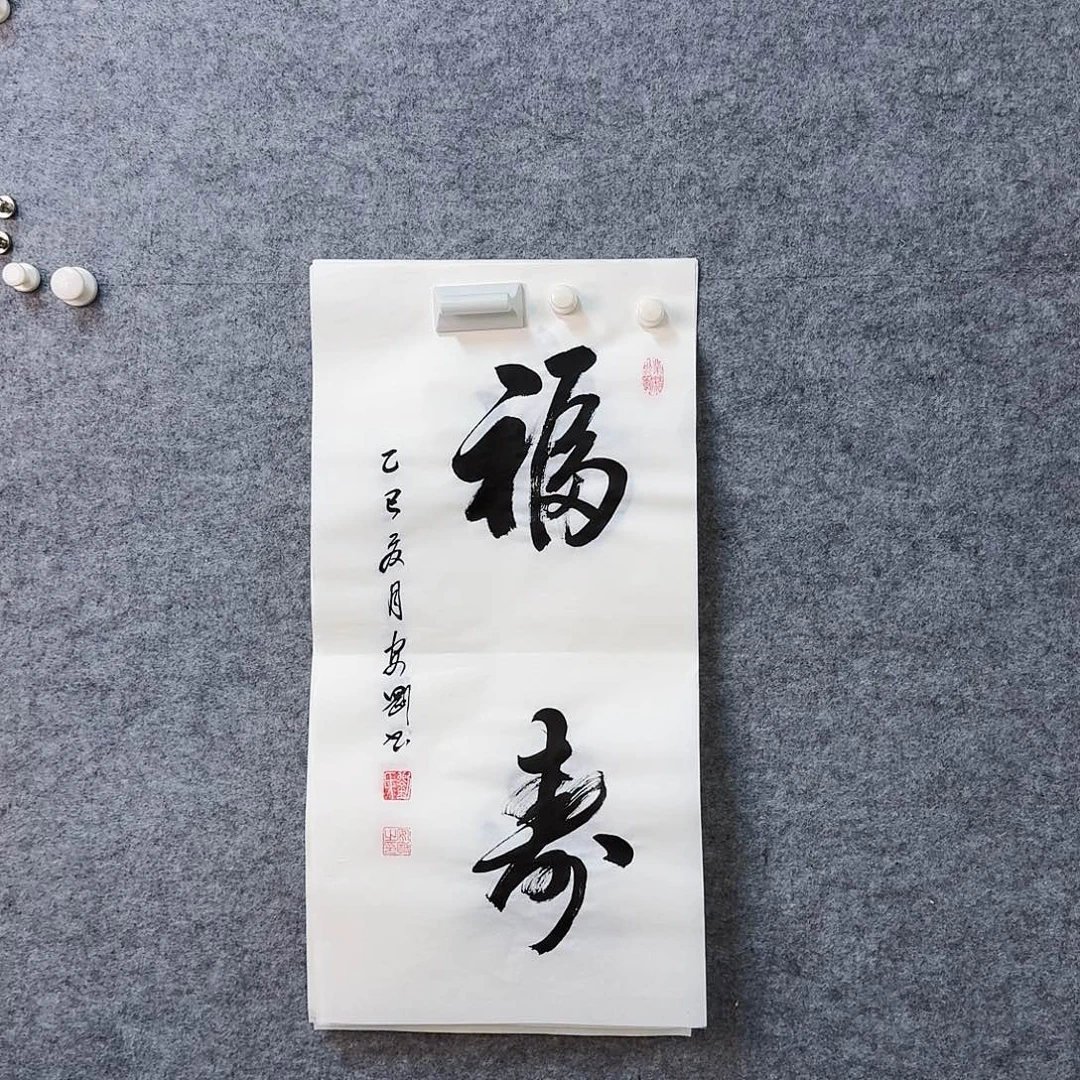 福寿
乙巳夏月安刚书